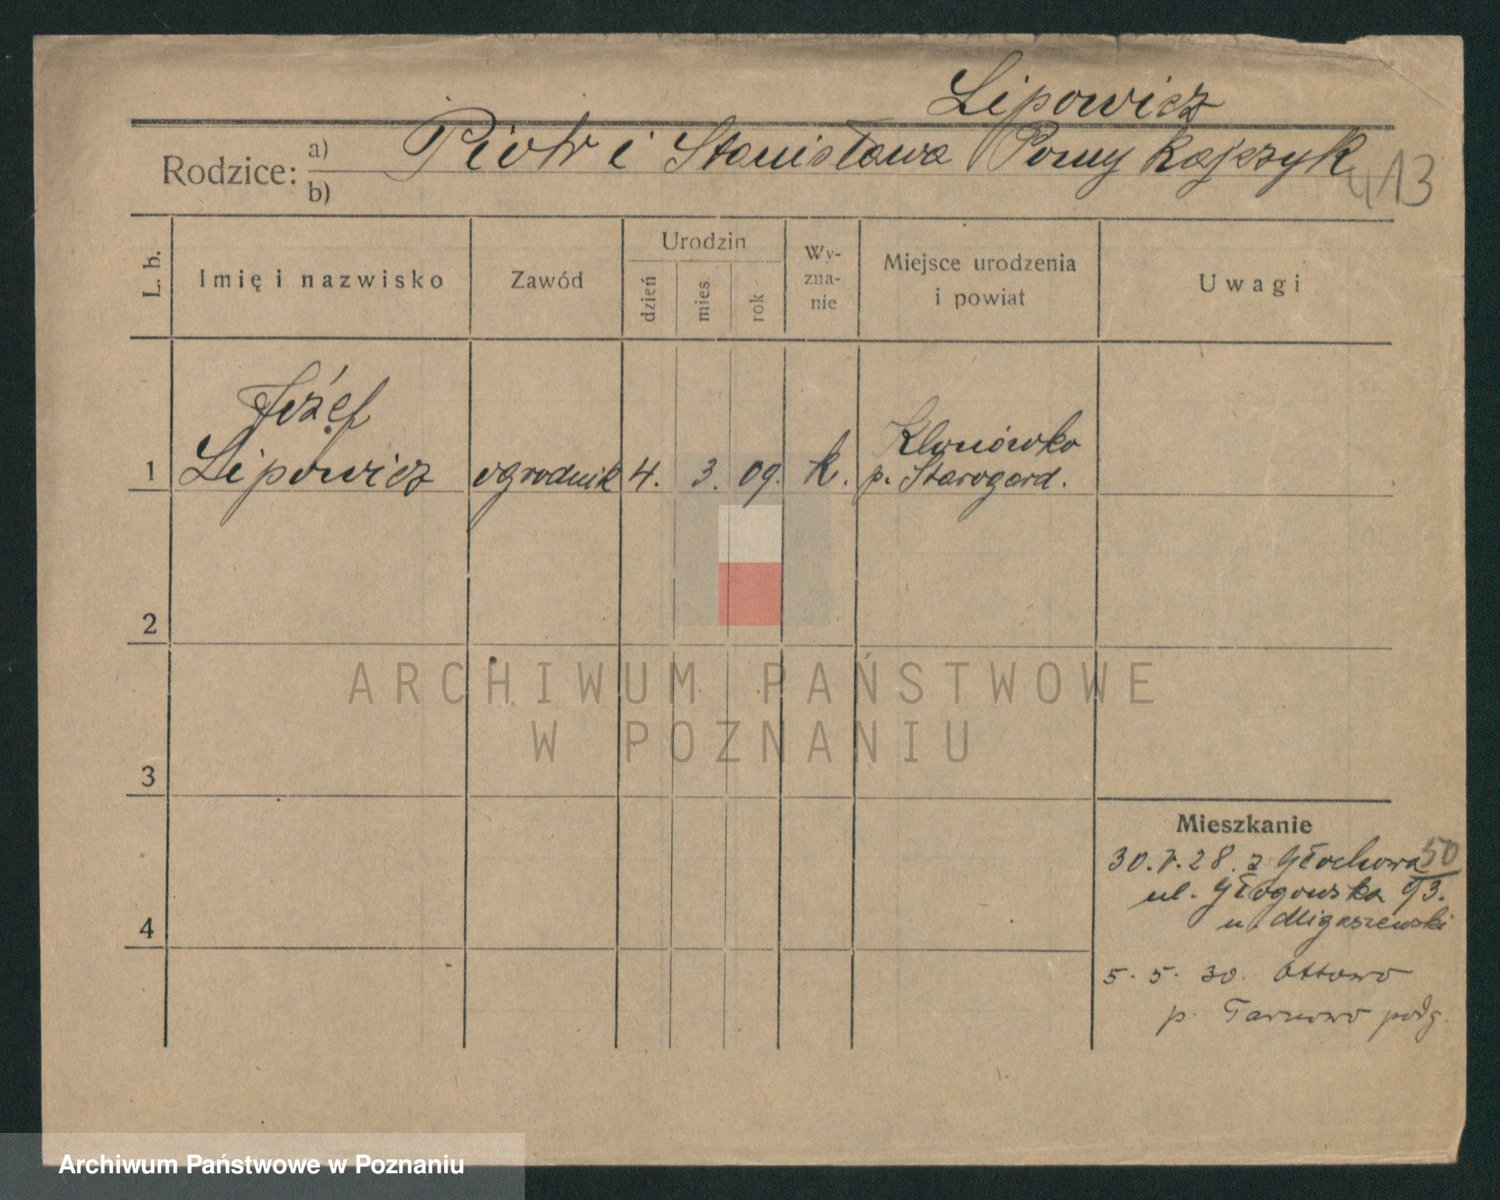 Lipowicz
Rodzice: a) Piotr i Stanisława Pomykajczyk
b)
413
L. b.
Imię i nazwisko
Zawód
Urodzin
dzień
mies.
rok
Wy-
zna-
nie
Miejsce urodzenia
i powiat
Uwagi
Józef
1 Lipowicz ogrodnik 4. 3. 09. k. Klonówko
p. Starogard.
2
3
4
ARCHIWUM PAŃSTWOWE
W POZNANIU
Mieszkanie
30.7.28. z 50
ul. Głogowska 93.
u. Migaszewski
5. 5. 30. Ottowo
p. Tarnowo podg.
Archiwum Państwowe w Poznaniu